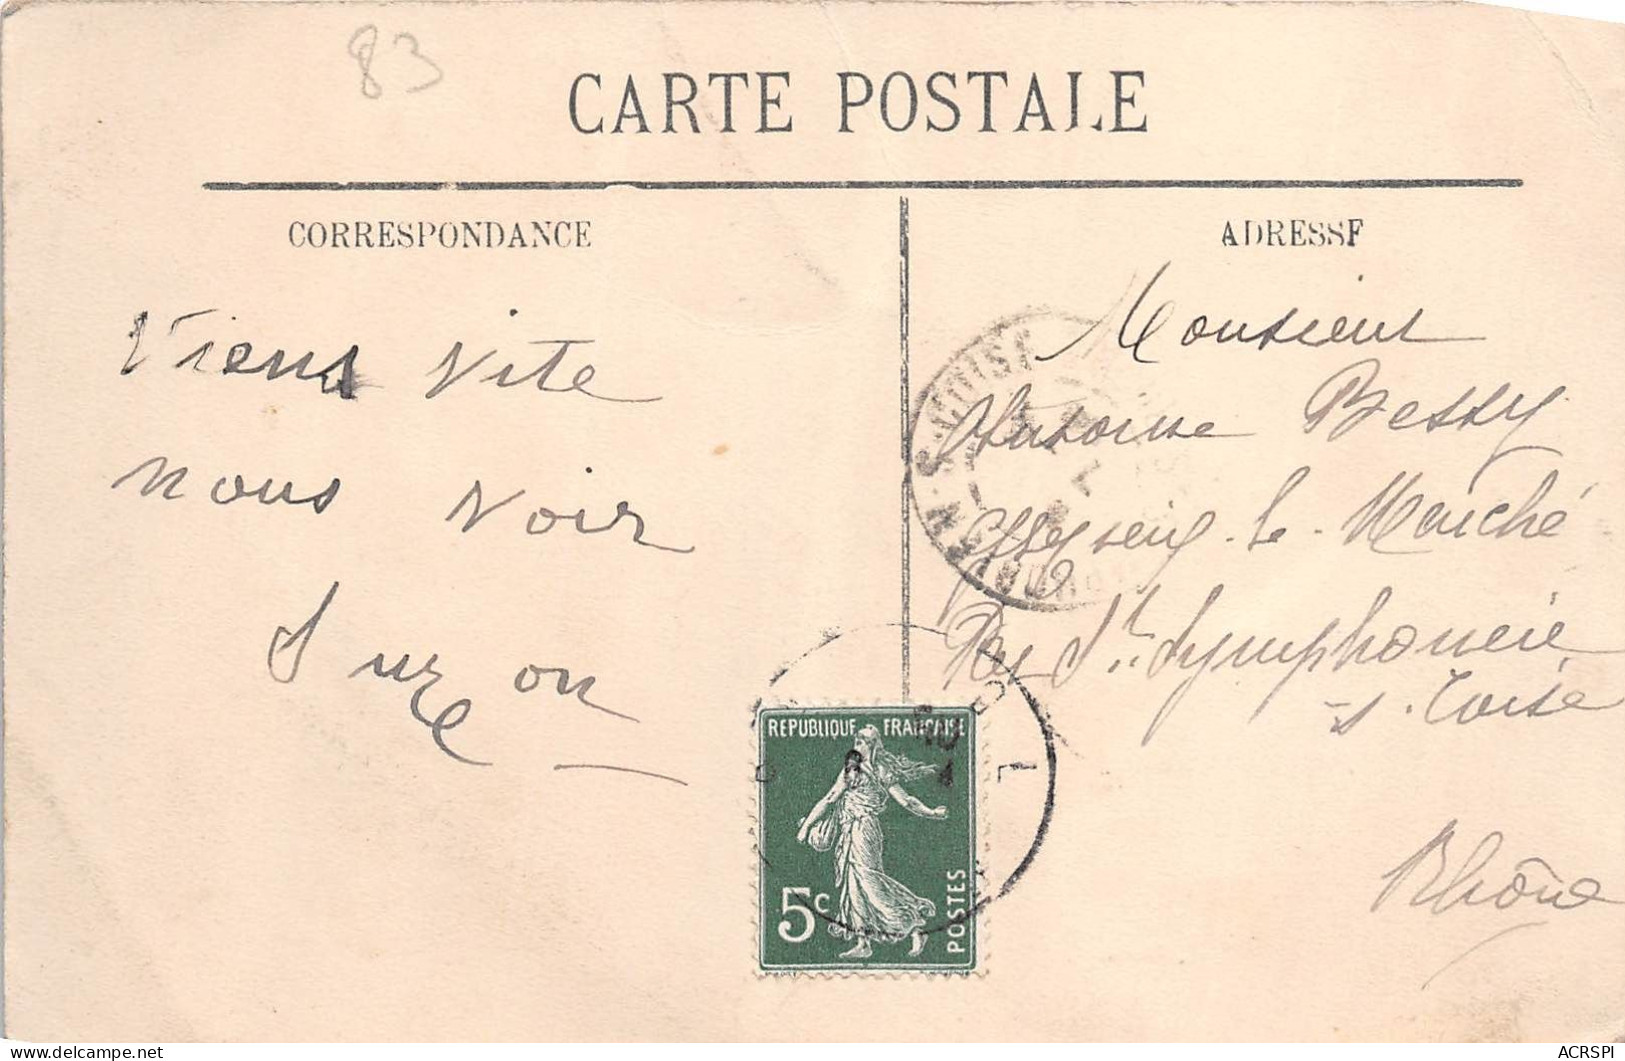 83
CARTE POSTALE
CORRESPONDANCE
ADRESSE
Viens vite
nous voir
Suzon
Monsieur
Antoine Bessy
le Marché
Par St Symphorien
s. Coise
Rhône
REPUBLIQUE FRANÇAISE
5c
POSTES
ACRSPI